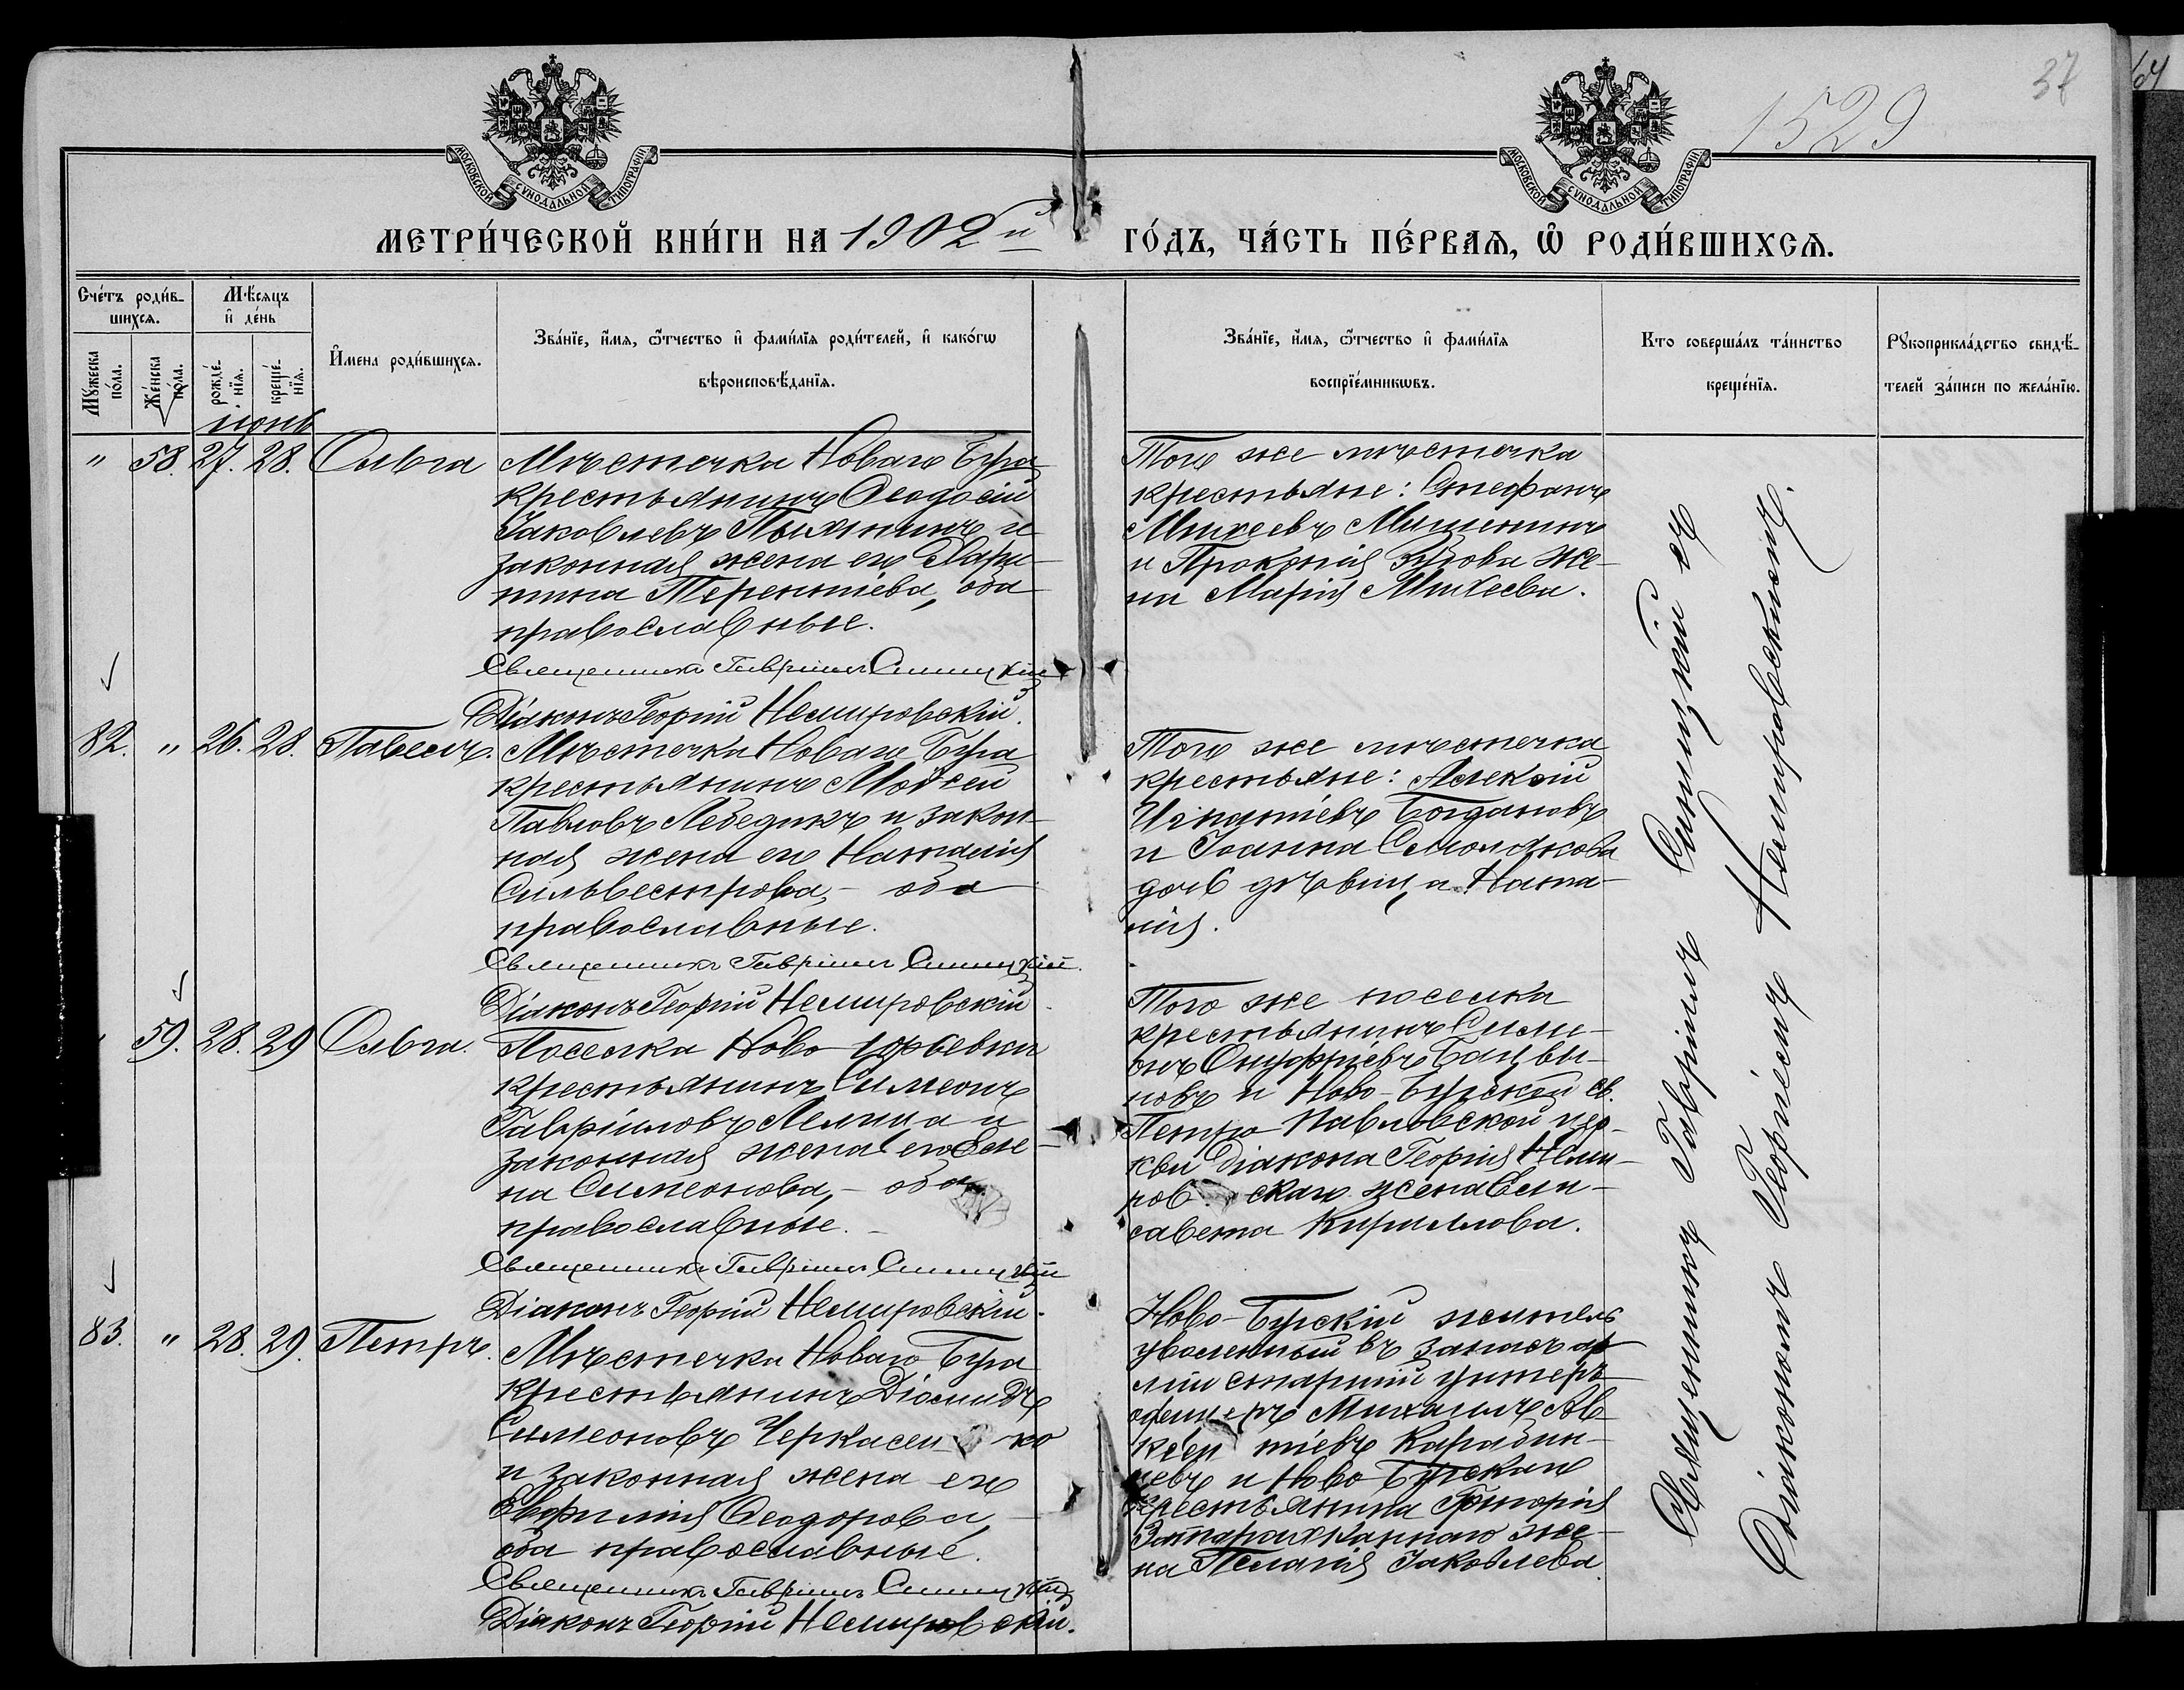 37
1529
МОСКОВСКОЙ СѴНОДАЛЬНОЙ ТИПОГРАФІИ
МОСКОВСКОЙ СѴНОДАЛЬНОЙ ТИПОГРАФІИ
МЕТРИ́ЧЕСКОЙ КНИ́ГИ НА 1902й ГО́ДЪ, ЧА́СТЬ ПЕ́РВАѦ, Ѽ РОДИ́ВШИХСѦ.
Сче́тъ роди́вшихсѧ.
Мꙋ́жеска по́ла.
Же́нска по́ла.
Мѣ́сѧцъ и҆ де́нь
рожде́нїѧ.
креще́нїѧ.
И҆мена роди́вшихсѧ.
Зва́нїе, и҆́мѧ, ѻ҆́тчество и҆ фами́лїѧ роди́телей, и҆ како́гѡ
вѣроисповѣ́данїѧ.
Зва́нїе, и҆́мѧ, ѻ҆́тчество и҆ фами́лїѧ
воспрїе́мникѡвъ.
Кто соверша́лъ та́инство
креще́нїѧ.
Рꙋкоприкла́дство свидѣ́-
телей за́писи по жела́нїю.
июнь
" 58. 27. 28. Ольга
Мѣстечка Новаго Буга
крестьянинъ Ѳеодосій
Іаковлевъ Пыхнинъ и
законная жена его Хари-
тина Терентіева, оба
православные.
Священникъ Гавріилъ Синицкій
Діаконъ Георгій Немировскій.
Того же мѣстечка
крестьяне: Стефанъ
Михеевъ Мишенинъ
и Прокопія Зубова же-
на Марія Михеева.
82. " 26. 28. Павелъ.
Мѣстечка Новаго Буга
крестьянинъ Моѵсей
Павловъ Лебедикъ и закон-
ная жена его Наталія
Сильвестрова, - оба
православные.
Священникъ Гавріилъ Синицкій.
Діаконъ Георгій Немировскій
Того же мѣстечка
крестьяне: Алексій
Игнатіевъ Богдановъ
и Іоанна Смолякова
дочь дѣвица Ната-
лія.
59. 28. 29 Ольга.
Поселка Ново-Юрьевки
крестьянинъ Симеонъ
Гавріиловъ Лемица и
законная жена его Еле-
на Симеонова, - оба
православные.
Священникъ Гавріилъ Синицкій
Діаконъ Георгій Немировскій.
Того же поселка
крестьянинъ Симе-
онъ Онуфріевъ
новъ и Ново-Бугской св.
Петро Павловской цер-
кви Діакона Георгія Неми-
ровскаго жена Ели-
савета Кириллова.
83. " 28. 29. Петръ.
Мѣстечка Новаго Буга
крестьянинъ Діомидъ
Симеоновъ Черкасенко
и законная жена его
Евфимія Ѳеодорова, -
оба православные.
Священникъ Гавріилъ Синицкій
Діаконъ Георгій Немировскій.
Ново-Бугскій житель
уволенный въ запасъ ар-
міи старшій унтеръ-
офицеръ Михаилъ Ав-
ксентіевъ Карабин-
цевъ и Ново-Бугскаго
крестьянина Григорія
жe-
на Пелагія Іаковлева.
Священникъ Гавріилъ Синицкій съ
Діакономъ Георгіемъ Немировскимъ.